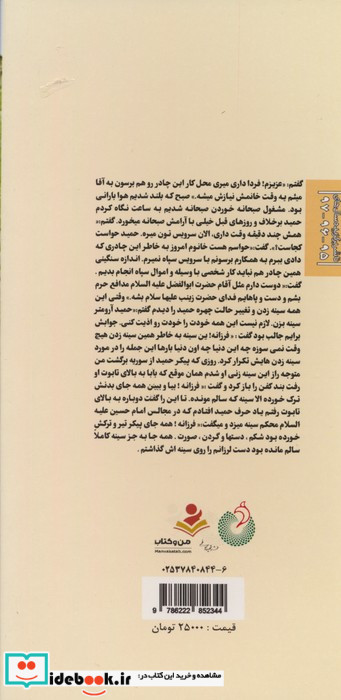 گفتم:«عزیزم؛ فردا داری میری محل کار این چادر رو هم برسون به آقا
میثم یه وقت خانمش نیازش میشه.» صبح که بلند شدیم هوا بارانی
بود. مشغول صبحانه خوردن صبحانه شدیم به ساعت نگاه کردم
حمید برخلاف و روزهای قبل خیلی با آرامش صبحانه میخورد. گفتم:«
همش چند دقیقه وقت داری، الان سرویس تون میره. حمید حواست
کجاست؟». گفت:«حواسم هست خانوم امروز به خاطر این چادری که
دادی ببرم به همکارم برسونم با سرویس سپاه نمیرم. اندازه سنگینی
همین چادر هم نباید کار شخصی با وسیله و اموال سپاه انجام بدیم .
گفت:«دوست دارم مثل آقام حضرت ابوالفضل علیه السلام مدافع حرم
بشم و دست و پاهایم فدای حضرت زینب علیها سلام بشه.» وقتی این
همه سینه زدن و تغییر حالت چهره حمید را دیدم گفتم:«حمید آرومتر
سینه بزن. لازم نیست این همه خودت را خودت رو اذیت کنی. جوابش
برایم جالب بود گفت:« فرزانه! این سینه به خاطر همین سینه زدن هیچ
وقت نمی سوزه چه این دنیا چه اون دنیا بارها این جمله را در مورد
سینه زدن هایش تکرار کرد. روزی که پیکر حمید از سوریه برگشت من
متوجه راز این سینه زنی او شدم همان موقع که بابا به بالای تابوت او
رفت بند کفن را باز کرد و گفت:«« فرزانه ! بیا و ببین همه جای بدنش
ترک خورده الا سینه که سالم مونده. تا این را گفت دوباره به بالای
تابوت رفتم یاد حرف حمید افتادم که در مجالس امام حسین علیه
السلام محکم سینه میزد و میگفت:«فرزانه ! همه جای پیکر تیر و ترکش
خورده بود شکم . دستها و گردن . صورت . همه جا به جز سینه کاملاً
سالم مانده بود دست لرزانم را روی سینه اش گذاشتم .
من‌وکتاب
Manvaketab.com
۰۲۵۳۷۸۴۰۸۴۴-۶
9 786222 852344
قیمت : ۲۵۰۰۰ تومان
مشاهده و خرید این کتاب در:
iidebook.ir